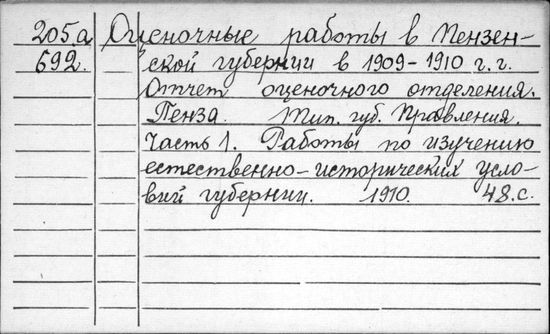 205а Оценочные работы в Пензен-
692. ской губернии в 1909-1910 г.г.
Отчет оценочного отделения.
Пенза. Тип. губ. Правления.
Часть 1. Работы по изучению
естественно-исторических усло-
вий губернии. 1910. 48.с.